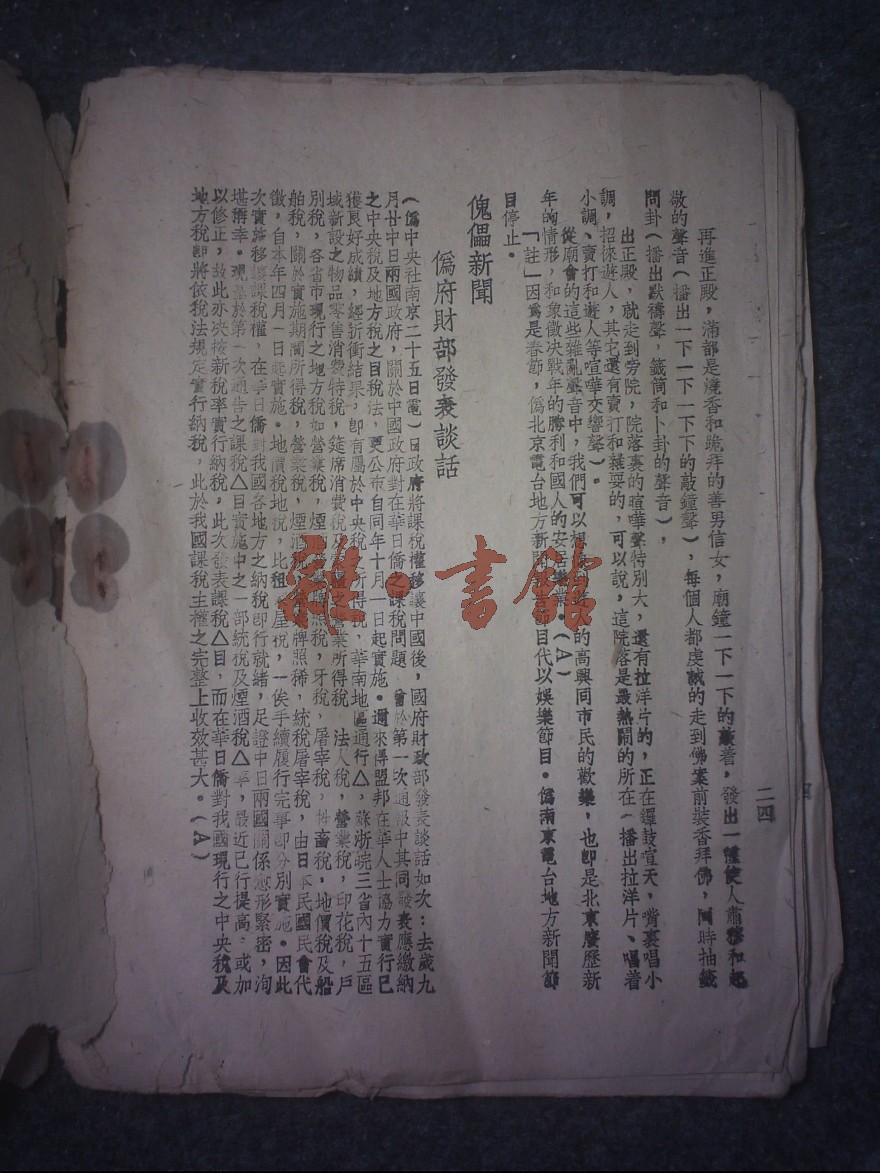 二四
再進正殿，滿都是燒香和跪拜的善男信女，廟鐘一下一下的敲着，發出一種使人肅穆和起
敬的聲音（播出一下一下一下下的敲鐘聲），每個人都虔誠的走到佛案前裝香拜佛，同時抽籤
問卦（播出默禱聲，籤筒和卜卦的聲音），
出正殿，就走到旁院，院落裏的喧嘩聲特別大，還有拉洋片的，正在鑼鼓喧天，嘴裏唱小
調，招徠遊人，其它還有賣打和雜耍的，可以說，這院落是最熱鬧的所在（播出拉洋片、唱着
小調、賣打和遊人等喧嘩交響聲）。
從廟會的這些雜亂聲音中，我們可以想 的高興同市民的歡樂，也卽是北京廢歷新
年的情形，和象徵决戰年的勝利和國人的安居樂業。（A）
「註」因爲是春節，僞北京電台地方新聞 節目代以娛樂節目。僞南京電台地方新聞節
目停止。
傀儡新聞
僞府財部發表談話
（僞中央社南京二十五日電）日政府將課稅權移讓中國後，國府財政部發表談話如次：去歲九
月廿中日兩國政府，關於中國政府對在華日僑之課稅問題，曾於第一次通報中其同發表應繳納
之中央稅及地方稅之目稅法，更公布自同年十月一日起實施。還來得盟邦在華人士協力實行已
獲良好成績，經折衝結果，卽有屬於中央稅 所得稅，華南地區通行△，蘇浙皖三省內十五區
域新設之物品零售消費特稅，筵席消費稅及 之營業所得稅，法人稅，營業稅，印花稅，戶
別稅，各省市現行之地方稅如營業稅，煙酒 牌照稅，牙稅，屠宰稅， 畜稅，地價稅及船
舶稅，關於實施期間所得稅，營業稅，煙酒稅 牌照稀，統稅屠宰稅，由日本民國民會代
徵，自本年四月一日起實施。地價稅地稅，比租 屋稅，一俟手續履行完事卽分別實施。因此
次實施移讓課稅權，在華日僑對我國各地方之納稅卽行就緒，足證中日兩國關係愈形緊密，洵
堪稱幸。現基於第一次通告之課稅△目實施中之一部統稅及煙酒稅△ ，最近已行提高，或加
以修正，故此亦決按新稅率實行納稅，此次發表課稅△目，而在華日僑對我國現行之中央稅及
地方稅卽將依稅法規定實行納稅，此於我國課稅主權之完整上收效甚大。（A）
雜·書館